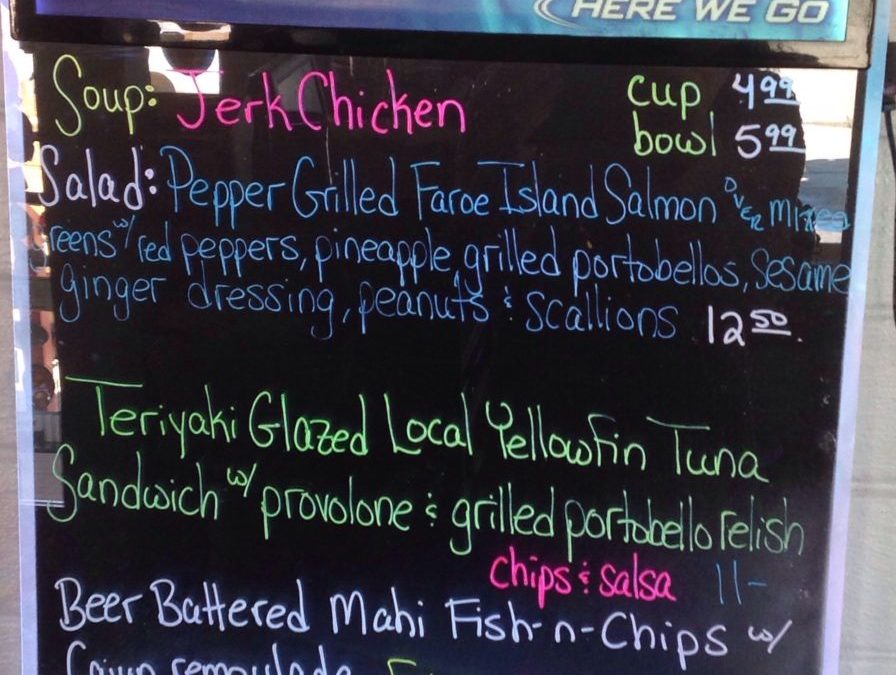 HERE WE GO
Soup: Jerk Chicken cup 4.99
bowl 5.99
Salad: Pepper Grilled Faroe Island Salmon over mixed
reens w/ red peppers, pineapple, grilled portobellos, sesame
ginger dressing, peanuts & scallions 12.50
Teriyaki Glazed Local Yellowfin Tuna
Sandwich w/ provolone & grilled portobello relish
chips & salsa 11-
Beer Battered Mahi Fish-n-Chips w/
Cajun remoulade